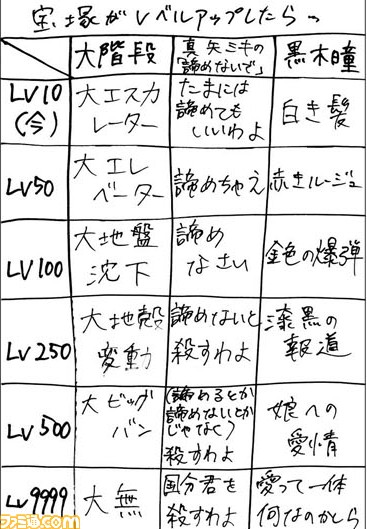 宝塚がレベルアップしたら→
大階段
真矢ミキの
「諦めないで」
黒木瞳
LV10
(今)
大エスカ
レーター
たまには
諦めても
いいわよ
白き髪
LV50
大エレ
ベーター
諦めちゃえ
赤きルージュ
LV100
大地盤
沈下
諦め
なさい
金色の爆弾
LV250
大地殻
変動
諦めないと
殺すわよ
漆黒の
報道
LV500
大ビッグ
バン
(諦めるとか
諦めないとか
じゃなく)
殺すわよ
娘への
愛情
LV9999
大無
国分君を
殺すわよ
愛って一体
何なのかしら
ファミ通.com